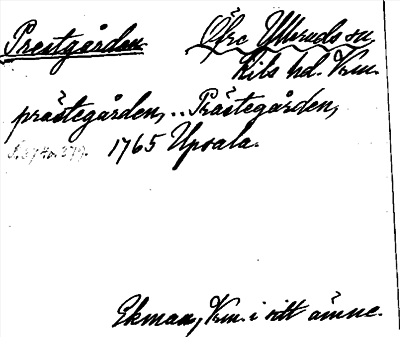 Prestgården Övre Ulleruds sn.
Kils hd. Vrm.
prästegården, .. Prästegården,
1765 Upsala.
Ekman, Vrm. i sitt ämne.